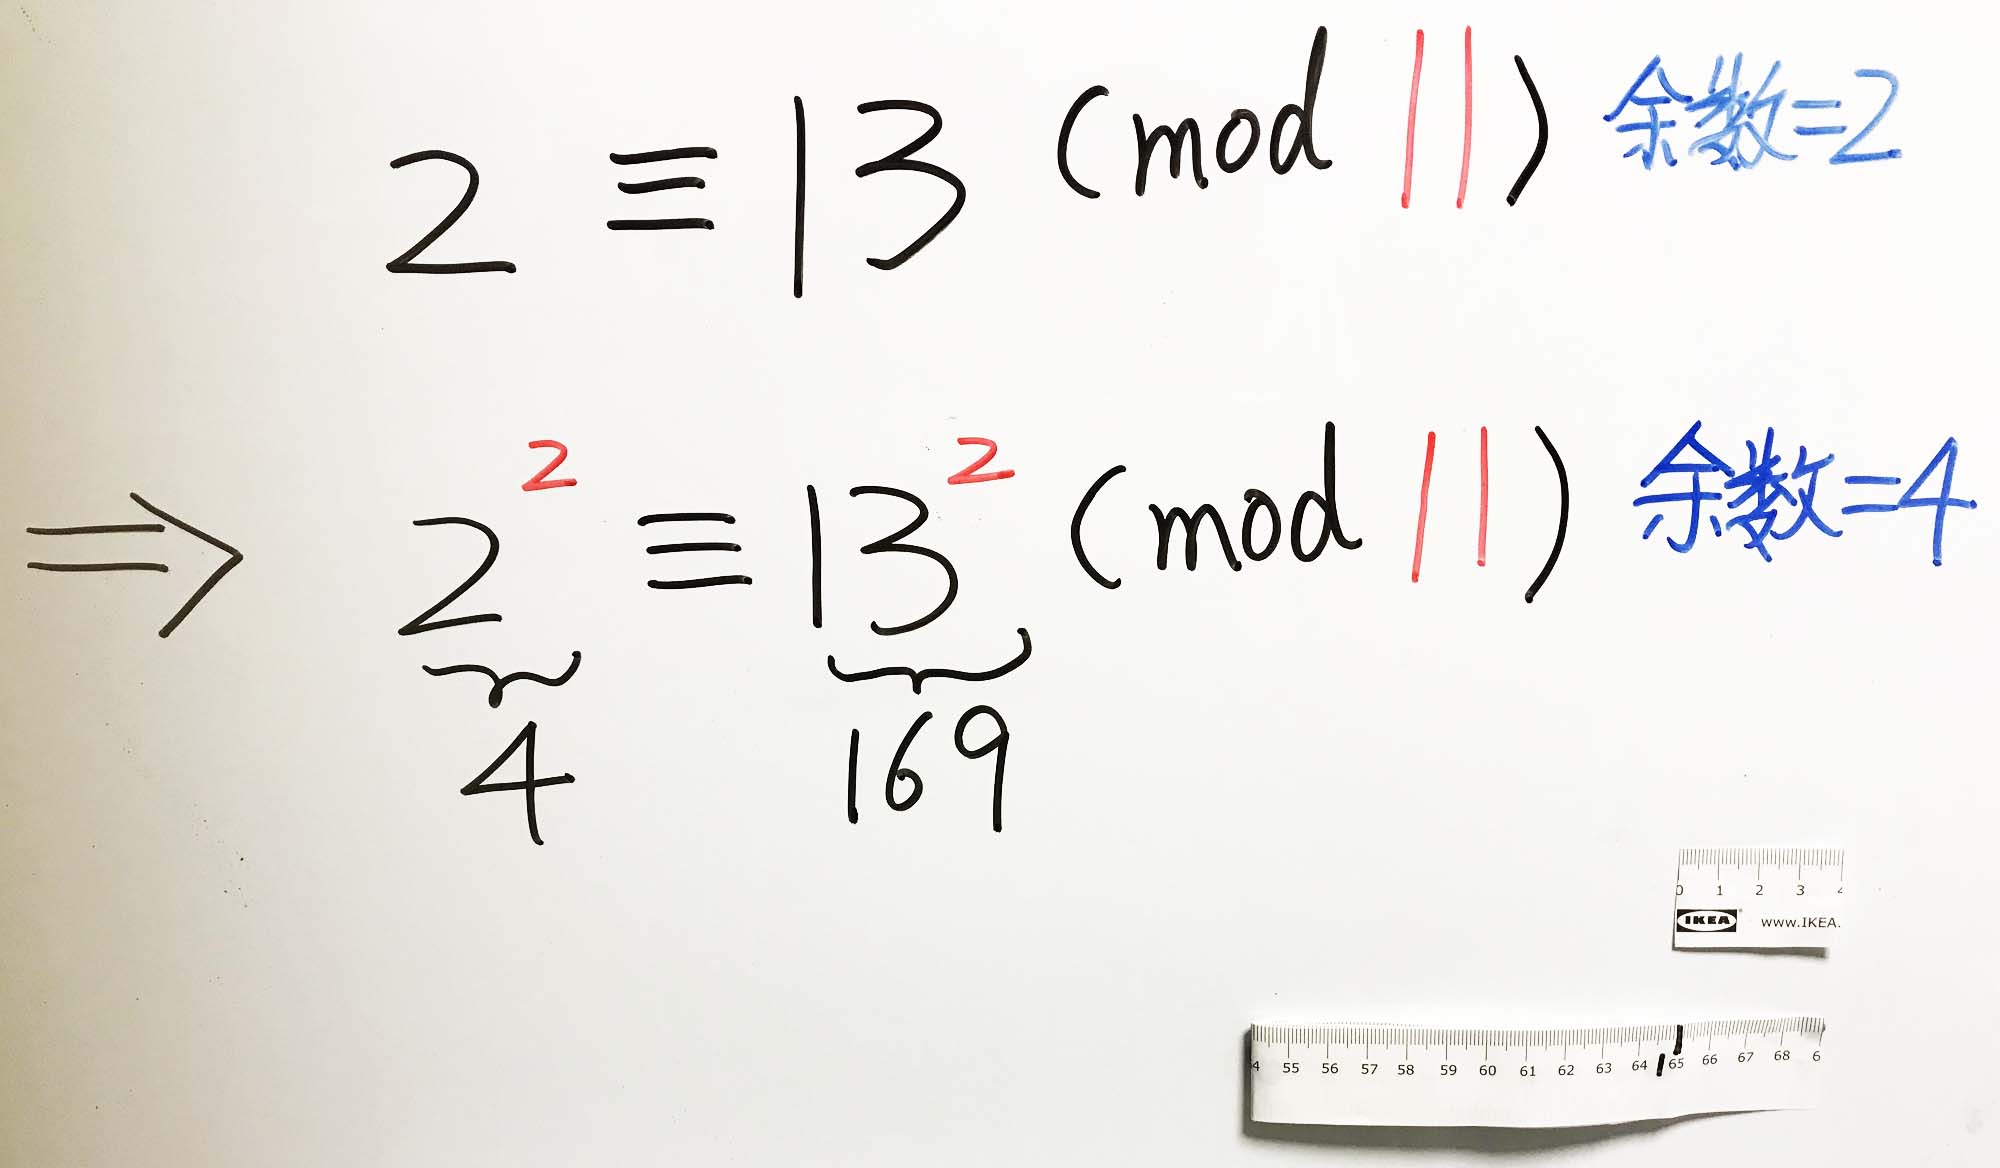 2 ≡ 13 (mod 11) 余数=2
⇒ 2² ≡ 13² (mod 11) 余数=4
4 169
0 1 2 3 4
IKEA® www.IKEA.
55 56 57 58 59 60 61 62 63 64 65 66 67 68 6